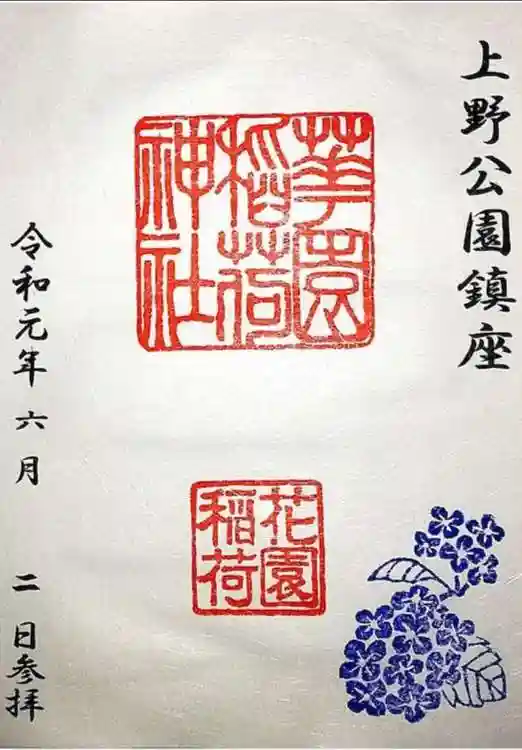 上野公園鎮座
華園
稲荷
神社
花園
稲荷
令和元年六月二日参拝